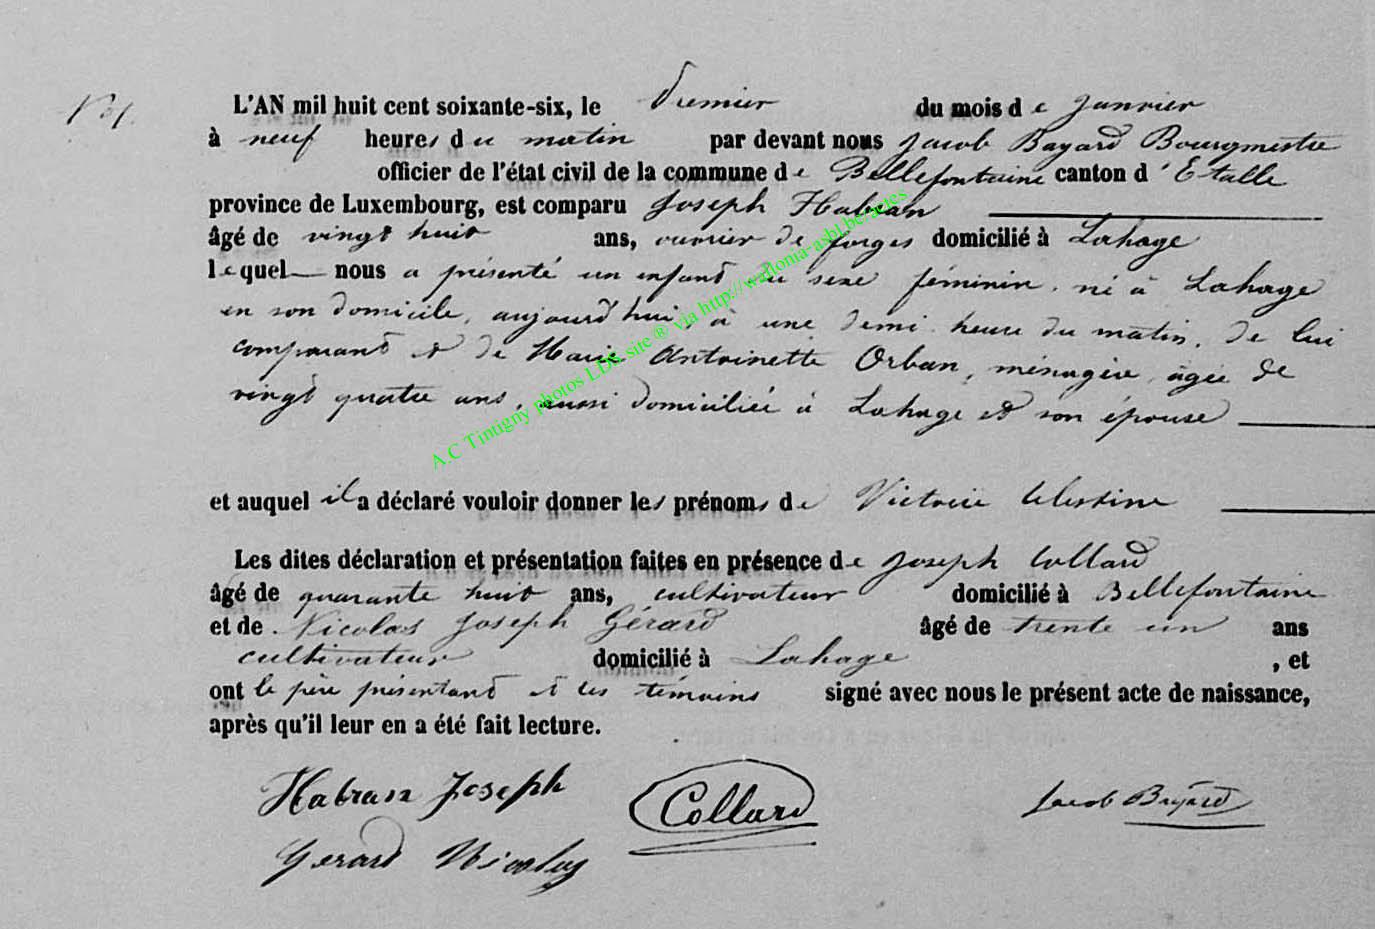 N° 1.
L'AN mil huit cent soixante-six, le premier du mois de Janvier
à neuf heures du matin par devant nous Jacob Bayard Bourgmestre
officier de l'état civil de la commune de Bellefontaine canton d'Etalle
province de Luxembourg, est comparu Joseph Habran
âgé de vingt huit ans, ouvrier de forges domicilié à Lahage
lequel nous a présenté un enfant du sexe féminin, né à Lahage
en son domicile, aujourd'hui, à une demi heure du matin, de lui
comparant et de Marie Antoinette Orban, ménagère, âgée de
vingt quatre ans, aussi domiciliée à Lahage et son épouse
et auquel il a déclaré vouloir donner les prénoms de Victoire Célestine
Les dites déclaration et présentation faites en présence de Joseph Collard
âgé de quarante huit ans, cultivateur domicilié à Bellefontaine
et de Nicolas Joseph Gérard âgé de trente un ans
cultivateur domicilié à Lahage , et
ont le père présentant et les témoins signé avec nous le présent acte de naissance,
après qu'il leur en a été fait lecture.
Habran Joseph Collard Jacob Bayard
Gerard Nicolas
A.C Tintigny photos LDS site ® via http://wallonia-asbl.be/actes